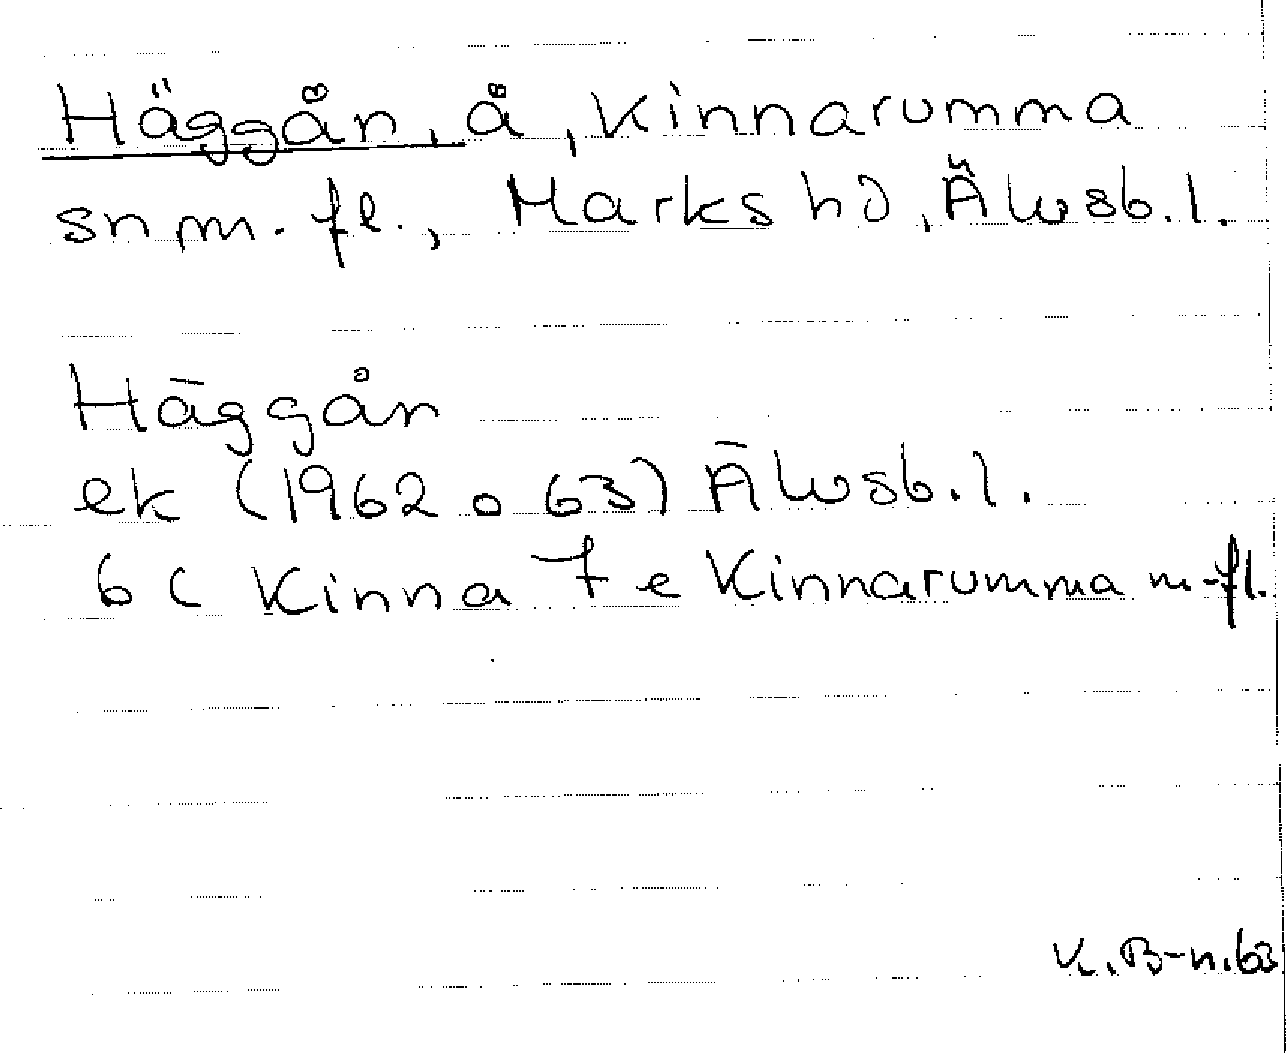 Häggån, å, Kinnarumma
sn m. fl., Marks hd, Älvsb. l.
Häggån
ek (1962 o 63) Älvsb. l.
6 c Kinna 7 e Kinnarumma m. fl.
K. B-n. 63